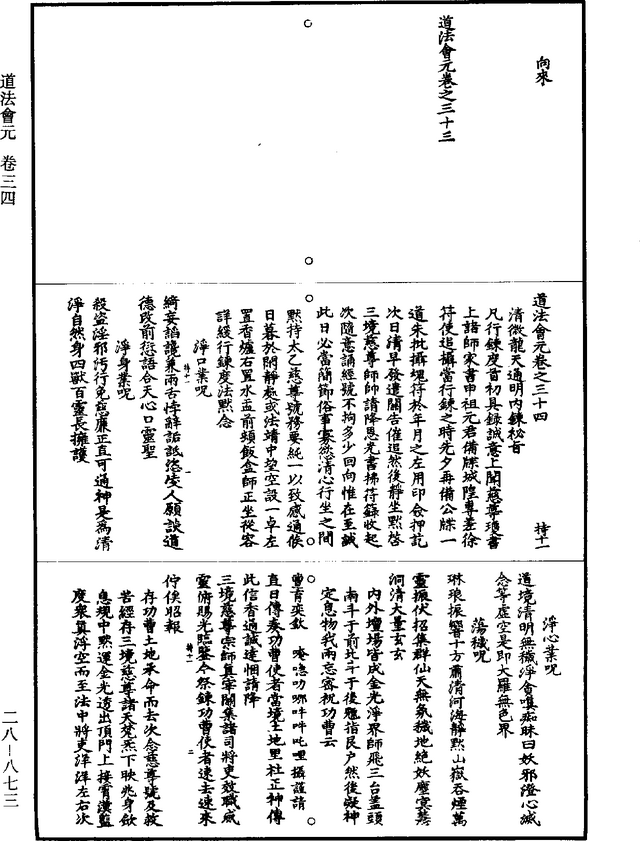 向來
道法會元卷之三十三
道法會元卷之三十四
持十一
清微龍天通明內鍊祕旨
凡行鍊度首初具錄誠意上聞慈尊琅書
上諸師家書申祖元君備牒城隍尊差徐
符使追攝當行鍊之時先夕再備公牒一
道朱批攝塊符於年月之左用印僉押訖
次日清早發遣關告催追然後靜坐默啓
三境慈尊師帥請降恩光書拂符籙收起
次隨意誦經號不拘多少回向惟在至誠
此日必當簡節俗事寡慾清心行坐之間
默持太乙慈尊號務要純一以致感通候
日暮於閑靜處或法靖中望空設一卓左
置香爐右置水盂前頭飯盒師正坐從容
詳緩行鍊度法默念
淨口業呪
綺妄謟讒兼兩舌悖辭詬詆恣凌人願談道
德改前愆語合天心口靈聖
淨身業呪
殺盜淫邪汚行免慈廉正直可通神是爲清
淨自然身四獸百靈長擁護
淨心業呪
道境清明無穢淨貪嗔痴昧曰妖邪澄心滅
念等虛空是即大羅無色界
蕩穢呪
琳琅振響十方肅清河海靜默山嶽吞煙萬
靈振伏招集群仙天無氛穢地絶妖塵冥慧
洞清大量玄玄
內外壇場皆成金光淨界師飛三台蓋頭
南斗于前北斗于後魁指艮户然後凝神
定息物我兩忘密祝功曹云
直日傳奏功曹使者當境土地里社正神傳
此信香通誠達悃請降
三境慈尊宗師真宰闔集諸司將吏效職威
靈俯賜光臨鑒今祭鍊功曹使者速去速來
佇俟昭報
存功曹土地承命而去次念慈尊號及救
苦經存三境慈尊諸天梵炁下映兆身歛
息規中默運金光透出頂門上接霄漢藍
度衆真浮空而至法中將吏洋洋左右次
道法會元　卷三四
二八—八七三